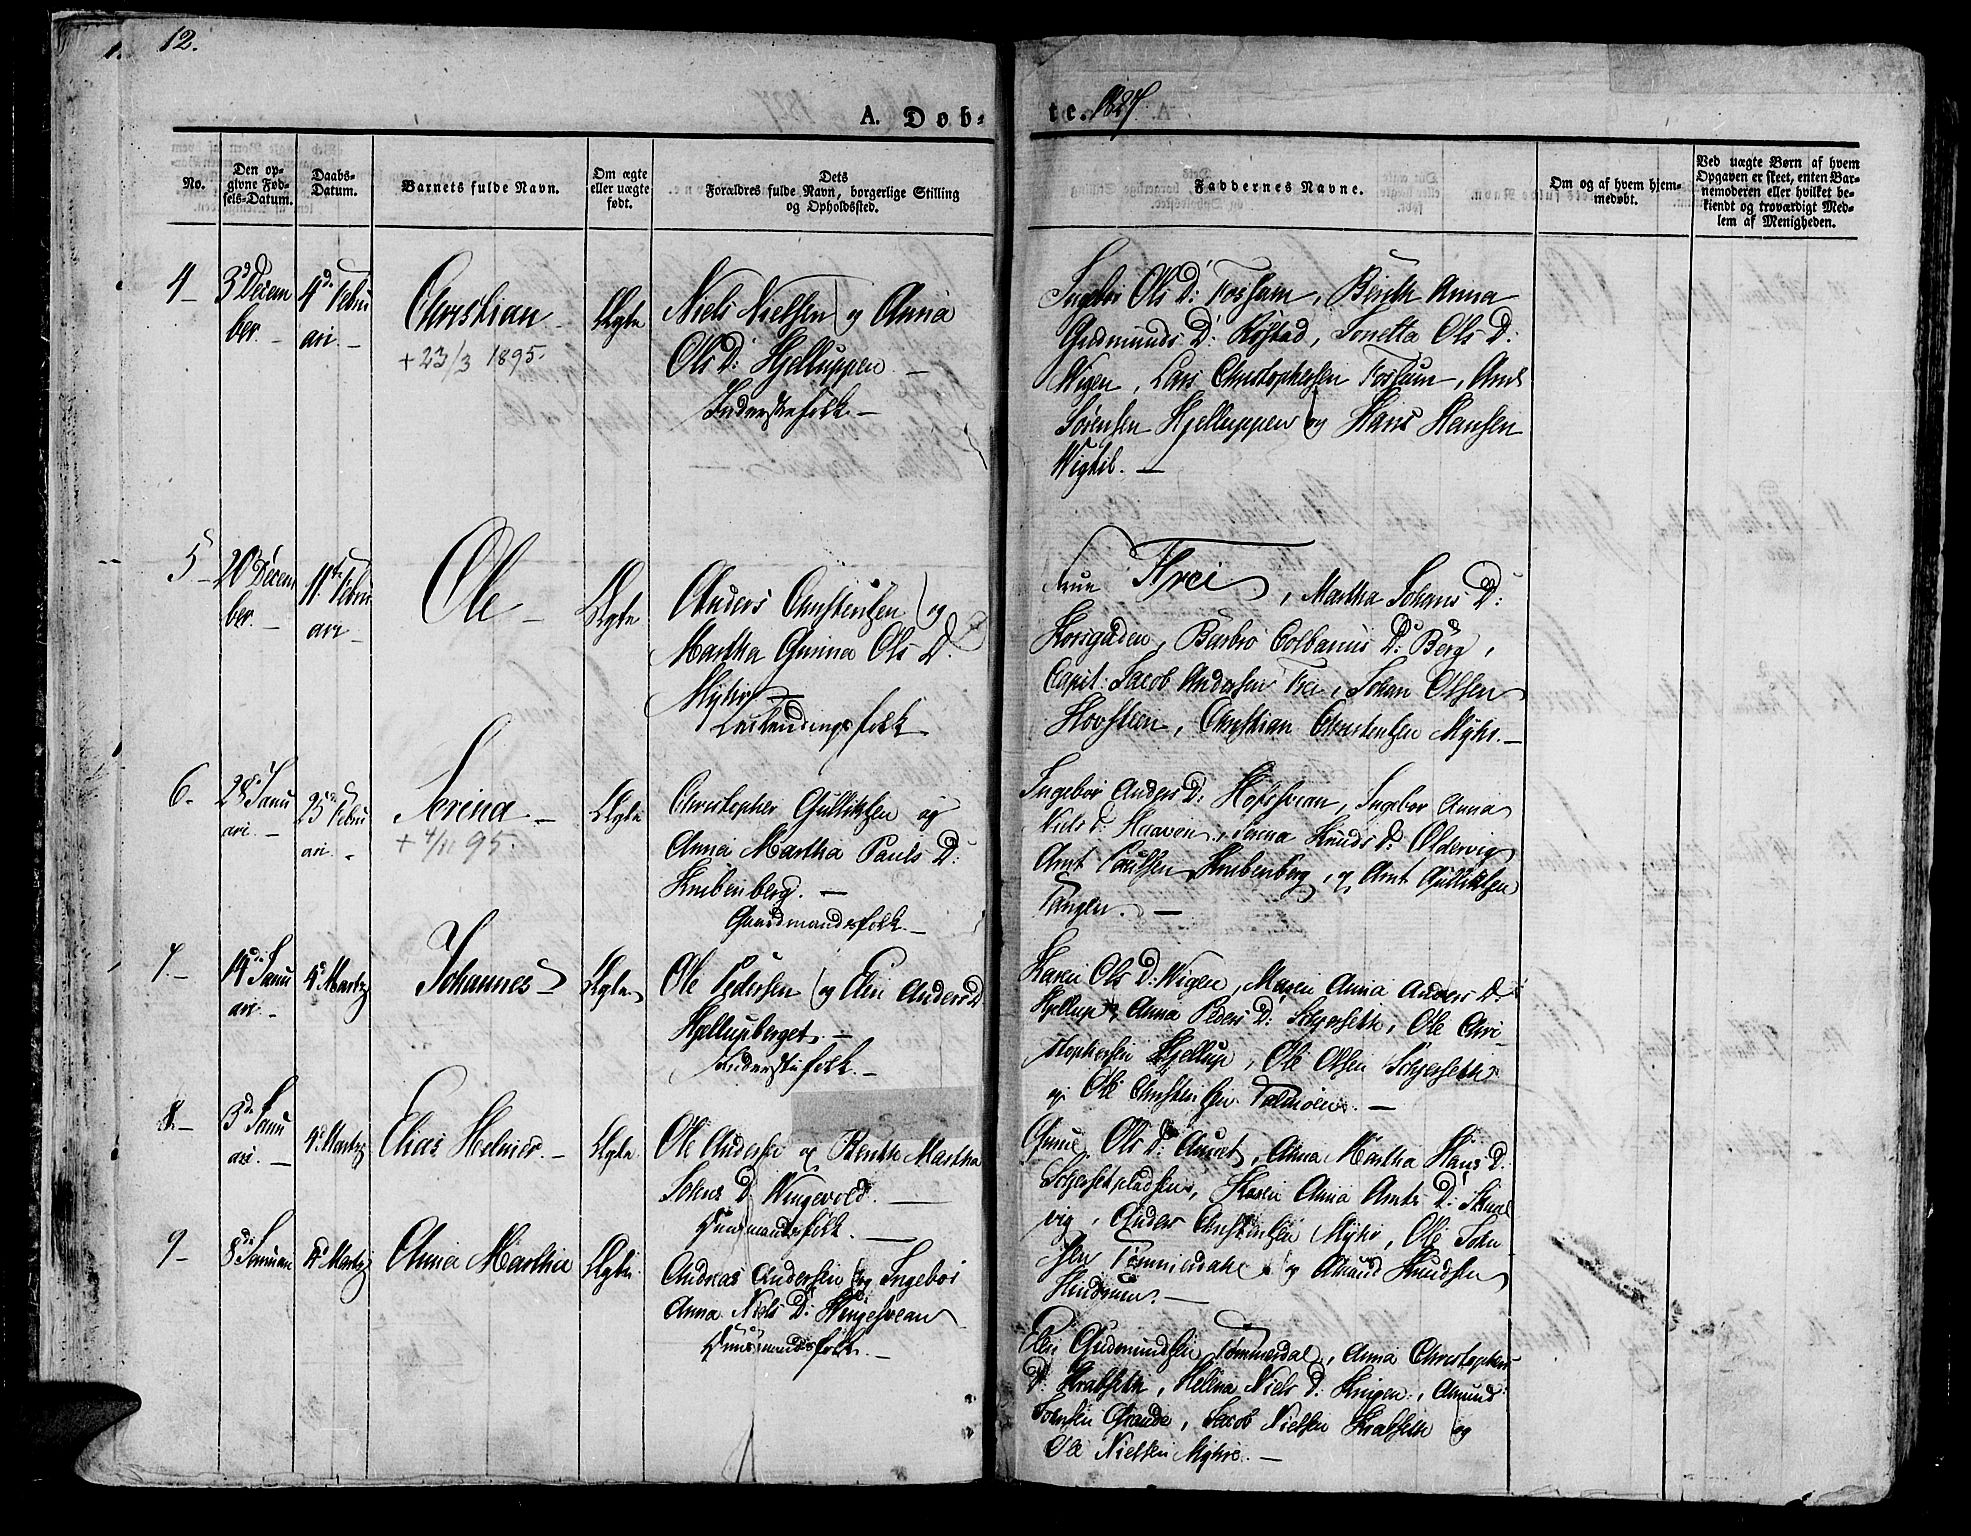 12.
A. Døb-
te. 1827
No.
Den op-
givne Fød-
sels-Datum.
Daabs-
Datum.
Barnets fulde Navn.
Om ægte
eller uægte
født.
Dets
Forældres fulde Navn, borgerlige Stilling
og Opholdssted.
Faddernes Navne.
Om og af hvem hjem-
medøbt.
Ved uægte Børn af hvem
Opgaven er skeet, enten Bar-
nemoderen eller hvilket be-
kiendt og troværdigt Med-
lem af Menigheden.
4-
3d Decem
ber.
4d Febru
ari.
Christian
+ 23/3 1895.
Ægte
Niels Nielsen og Anna
Ols D: Hjelluppen
Inderstefolk
Ingebor Ols D: Fossum, Berith Anna
Gudmunds D: Røstad, Jonetta Ols D:
Wigen, Lars Christophersen Fossum, Arnt
Sørensen Hjelluppen og Hans Hansen
5-
20 Decem
ber.
11te Febru
ari
Ole
Ægte
Anders Christensen og
Martha Gurina Ols D.
Myhr
folk
Frue Frei, Martha Johans D:
Barbro Colbanus D: Berg,
Capit: Jacob Andersen Frei, Johan Olsen
Christian Christensen Myhr.
6-
28d Janu
ari.
25de Febru
ari
Serina
+ 4/11 95.
Ægte
Christopher Gulliksen og
Anna Martha Pauls D:
Knubenberg.
Gaardmandsfolk
Ingebor Anders D: Ingebor Anna
Niels D: Knuds D: Oldervig
Arnt Paulsen Knubenberg, og Arnt Gulliksen
Tangen.
7.
14d Janu
ari.
4d Martz
Johannes
Ægte
Ole Pedersen og Elen Anders D
Hjellupberget.
Inderstefolk.
Karen Ols D: Wigen, Maren Anna Anders D:
Hjellup, Anna Peders D: Ole Chri-
stophersen Hjellup, Ole Olsen
og Ole Christensen
8.
3d Janu
ari.
4d Martz
Elias Helmer.
Ægte
Ole Andersen og Berith Martha
Johns D. Wingevold.
Huusmandsfolk.
Ols D: Anna Martha Hans D.
Karen Anna Arnts D:
vig, Anders Christensen Myhr, Ole John
sen Tømmerdahl og Amund Knudsen
9-
8de Januari
4d Martz
Anna Martha
Ægte
Andreas Andersen og Ingebor
Anna Niels D:
Huusmandsfolk.
Elen Gudmundsen Tømmerdal, Anna Christophers
D: Krabseth, Helena Niels D: Amund
Johnsen Grande, Jacob Nielsen Krabseth og
Ole Nielsen Myhre.